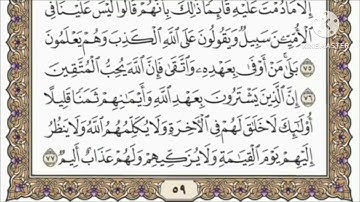 إِلَّا مَا دُمْتَ عَلَيْهِ قَآئِمًا ذَٰلِكَ بِأَنَّهُمْ قَالُوا۟ لَيْسَ عَلَيْنَا فِى
ٱلْأُمِّيِّـۧنَ سَبِيلٌ وَيَقُولُونَ عَلَى ٱللَّهِ ٱلْكَذِبَ وَهُمْ يَعْلَمُونَ
٧٥ بَلَىٰ مَنْ أَوْفَىٰ بِعَهْدِهِۦ وَٱتَّقَىٰ فَإِنَّ ٱللَّهَ يُحِبُّ ٱلْمُتَّقِينَ
٧٦ إِنَّ ٱلَّذِينَ يَشْتَرُونَ بِعَهْدِ ٱللَّهِ وَأَيْمَٰنِهِمْ ثَمَنًا قَلِيلًا
أُو۟لَٰٓئِكَ لَا خَلَٰقَ لَهُمْ فِى ٱلْءَاخِرَةِ وَلَا يُكَلِّمُهُمُ ٱللَّهُ وَلَا يَنظُرُ
إِلَيْهِمْ يَوْمَ ٱلْقِيَٰمَةِ وَلَا يُزَكِّيهِمْ وَلَهُمْ عَذَابٌ أَلِيمٌ ٧٧
٥٩
KINEMASTER